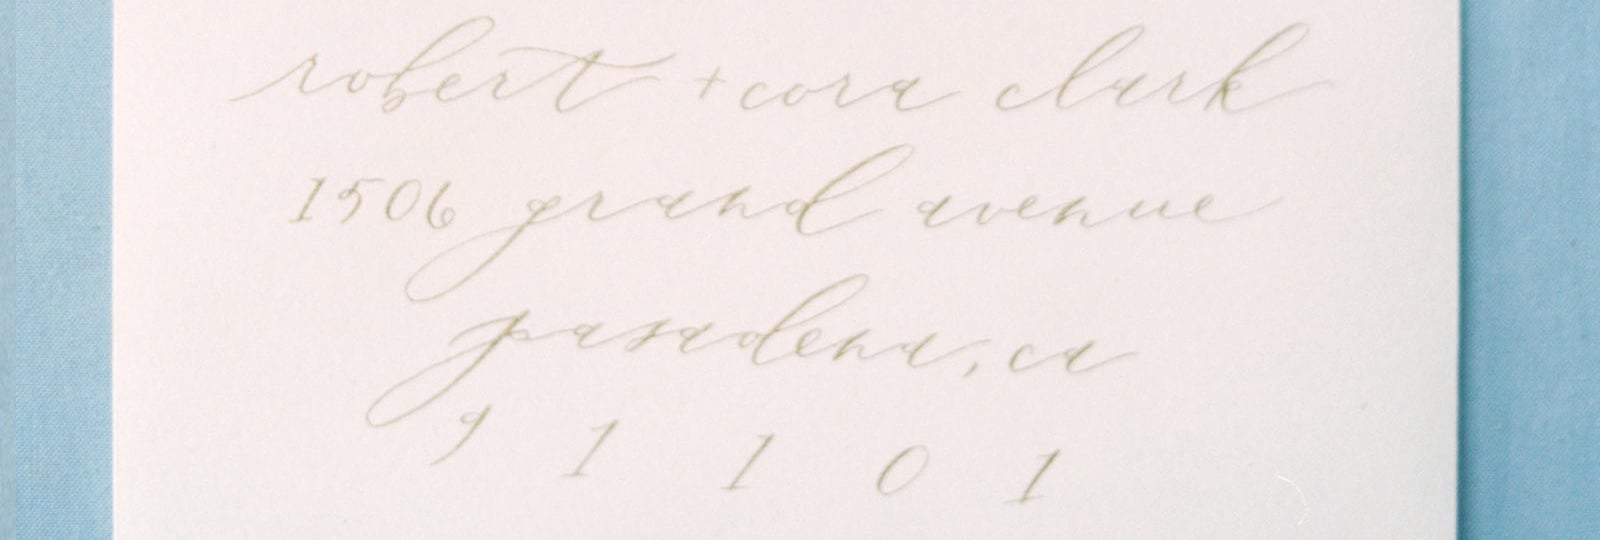 robert + cora clark
1506 grand avenue
pasadena, ca
91101